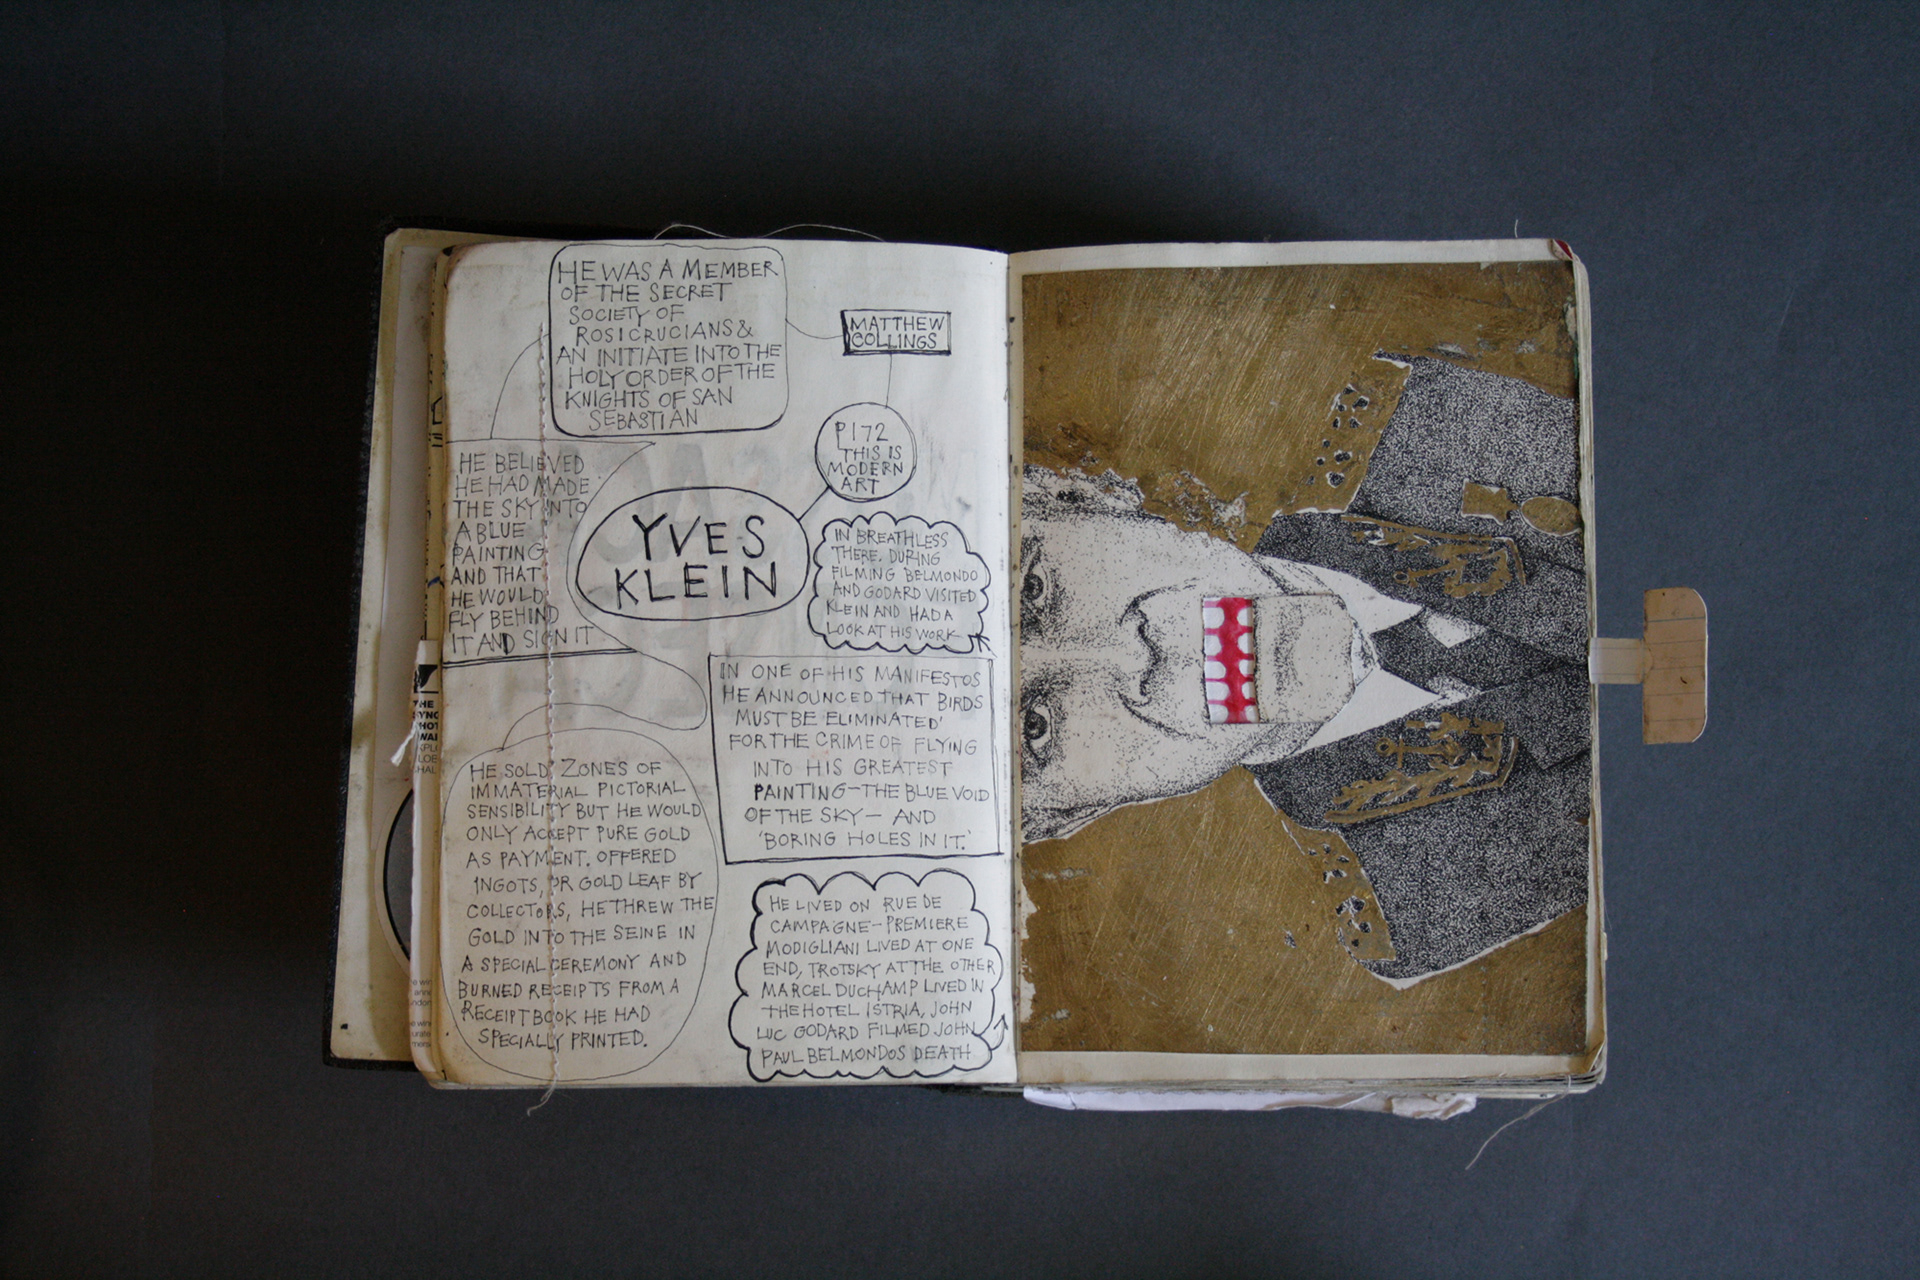 HE WAS A MEMBER
OF THE SECRET
SOCIETY OF
ROSICRUCIANS &
AN INITIATE INTO THE
HOLY ORDER OF THE
KNIGHTS OF SAN
SEBASTIAN
MATTHEW
COLLINGS
P172
THIS IS
MODERN
ART
YVES
KLEIN
HE BELIEVED
HE HAD MADE
THE SKY INTO
A BLUE
PAINTING
AND THAT
HE WOULD
FLY BEHIND
IT AND SIGN IT
IN BREATHLESS
THERE. DURING
FILMING BELMONDO
AND GODARD VISITED
KLEIN AND HAD A
LOOK AT HIS WORK
IN ONE OF HIS MANIFESTOS
HE ANNOUNCED THAT BIRDS
MUST BE ELIMINATED'
FOR THE CRIME OF FLYING
INTO HIS GREATEST
PAINTING—THE BLUE VOID
OF THE SKY— AND
'BORING HOLES IN IT.'
HE SOLD 'ZONES OF
IMMATERIAL PICTORIAL
SENSIBILITY BUT HE WOULD
ONLY ACCEPT PURE GOLD
AS PAYMENT. OFFERED
INGOTS, OR GOLD LEAF BY
COLLECTORS, HE THREW THE
GOLD INTO THE SEINE IN
A SPECIAL CEREMONY AND
BURNED RECEIPTS FROM A
RECEIPT BOOK HE HAD
SPECIALLY PRINTED.
HE LIVED ON RUE DE
CAMPAGNE—PREMIERE
MODIGLIANI LIVED AT ONE
END, TROTSKY AT THE OTHER
MARCEL DUCHAMP LIVED IN
THE HOTEL ISTRIA, JOHN
LUC GODARD FILMED JOHN
PAUL BELMONDOS DEATH
THE